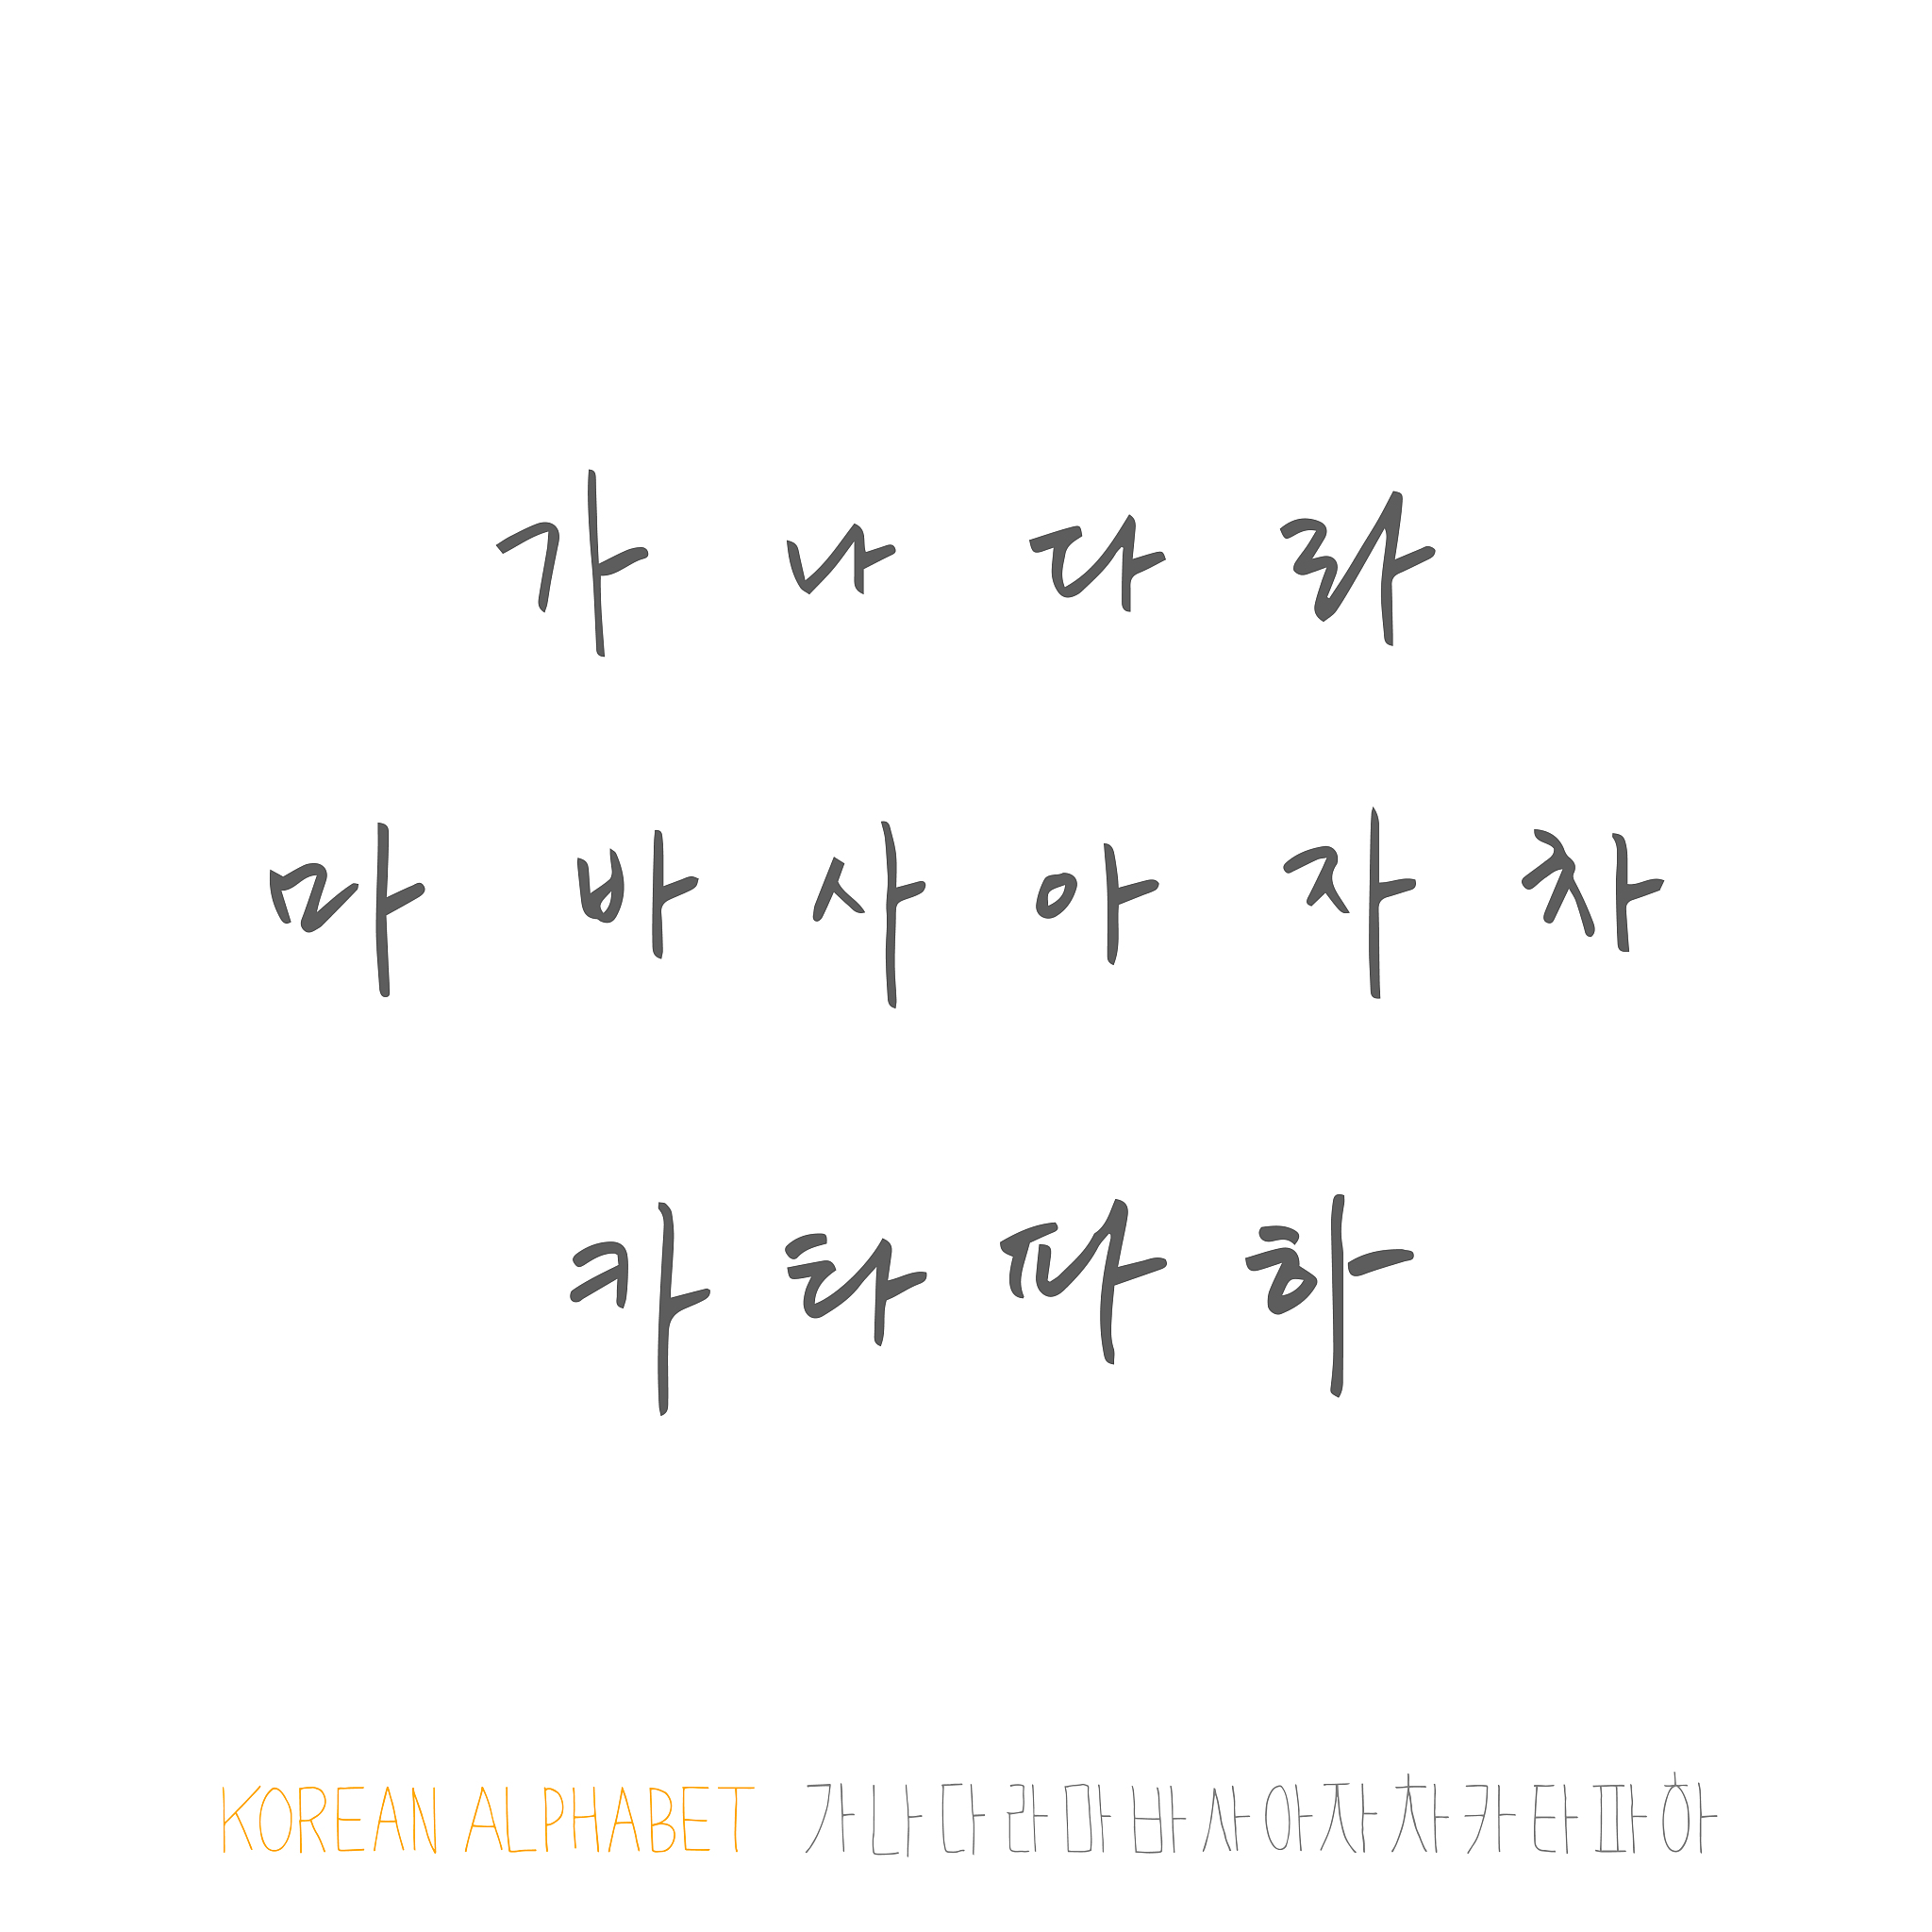 가 나 다 라
마 바 사 아 자 차
카 타 파 하
KOREAN ALPHABET 가나다라마바사아자차카타파하